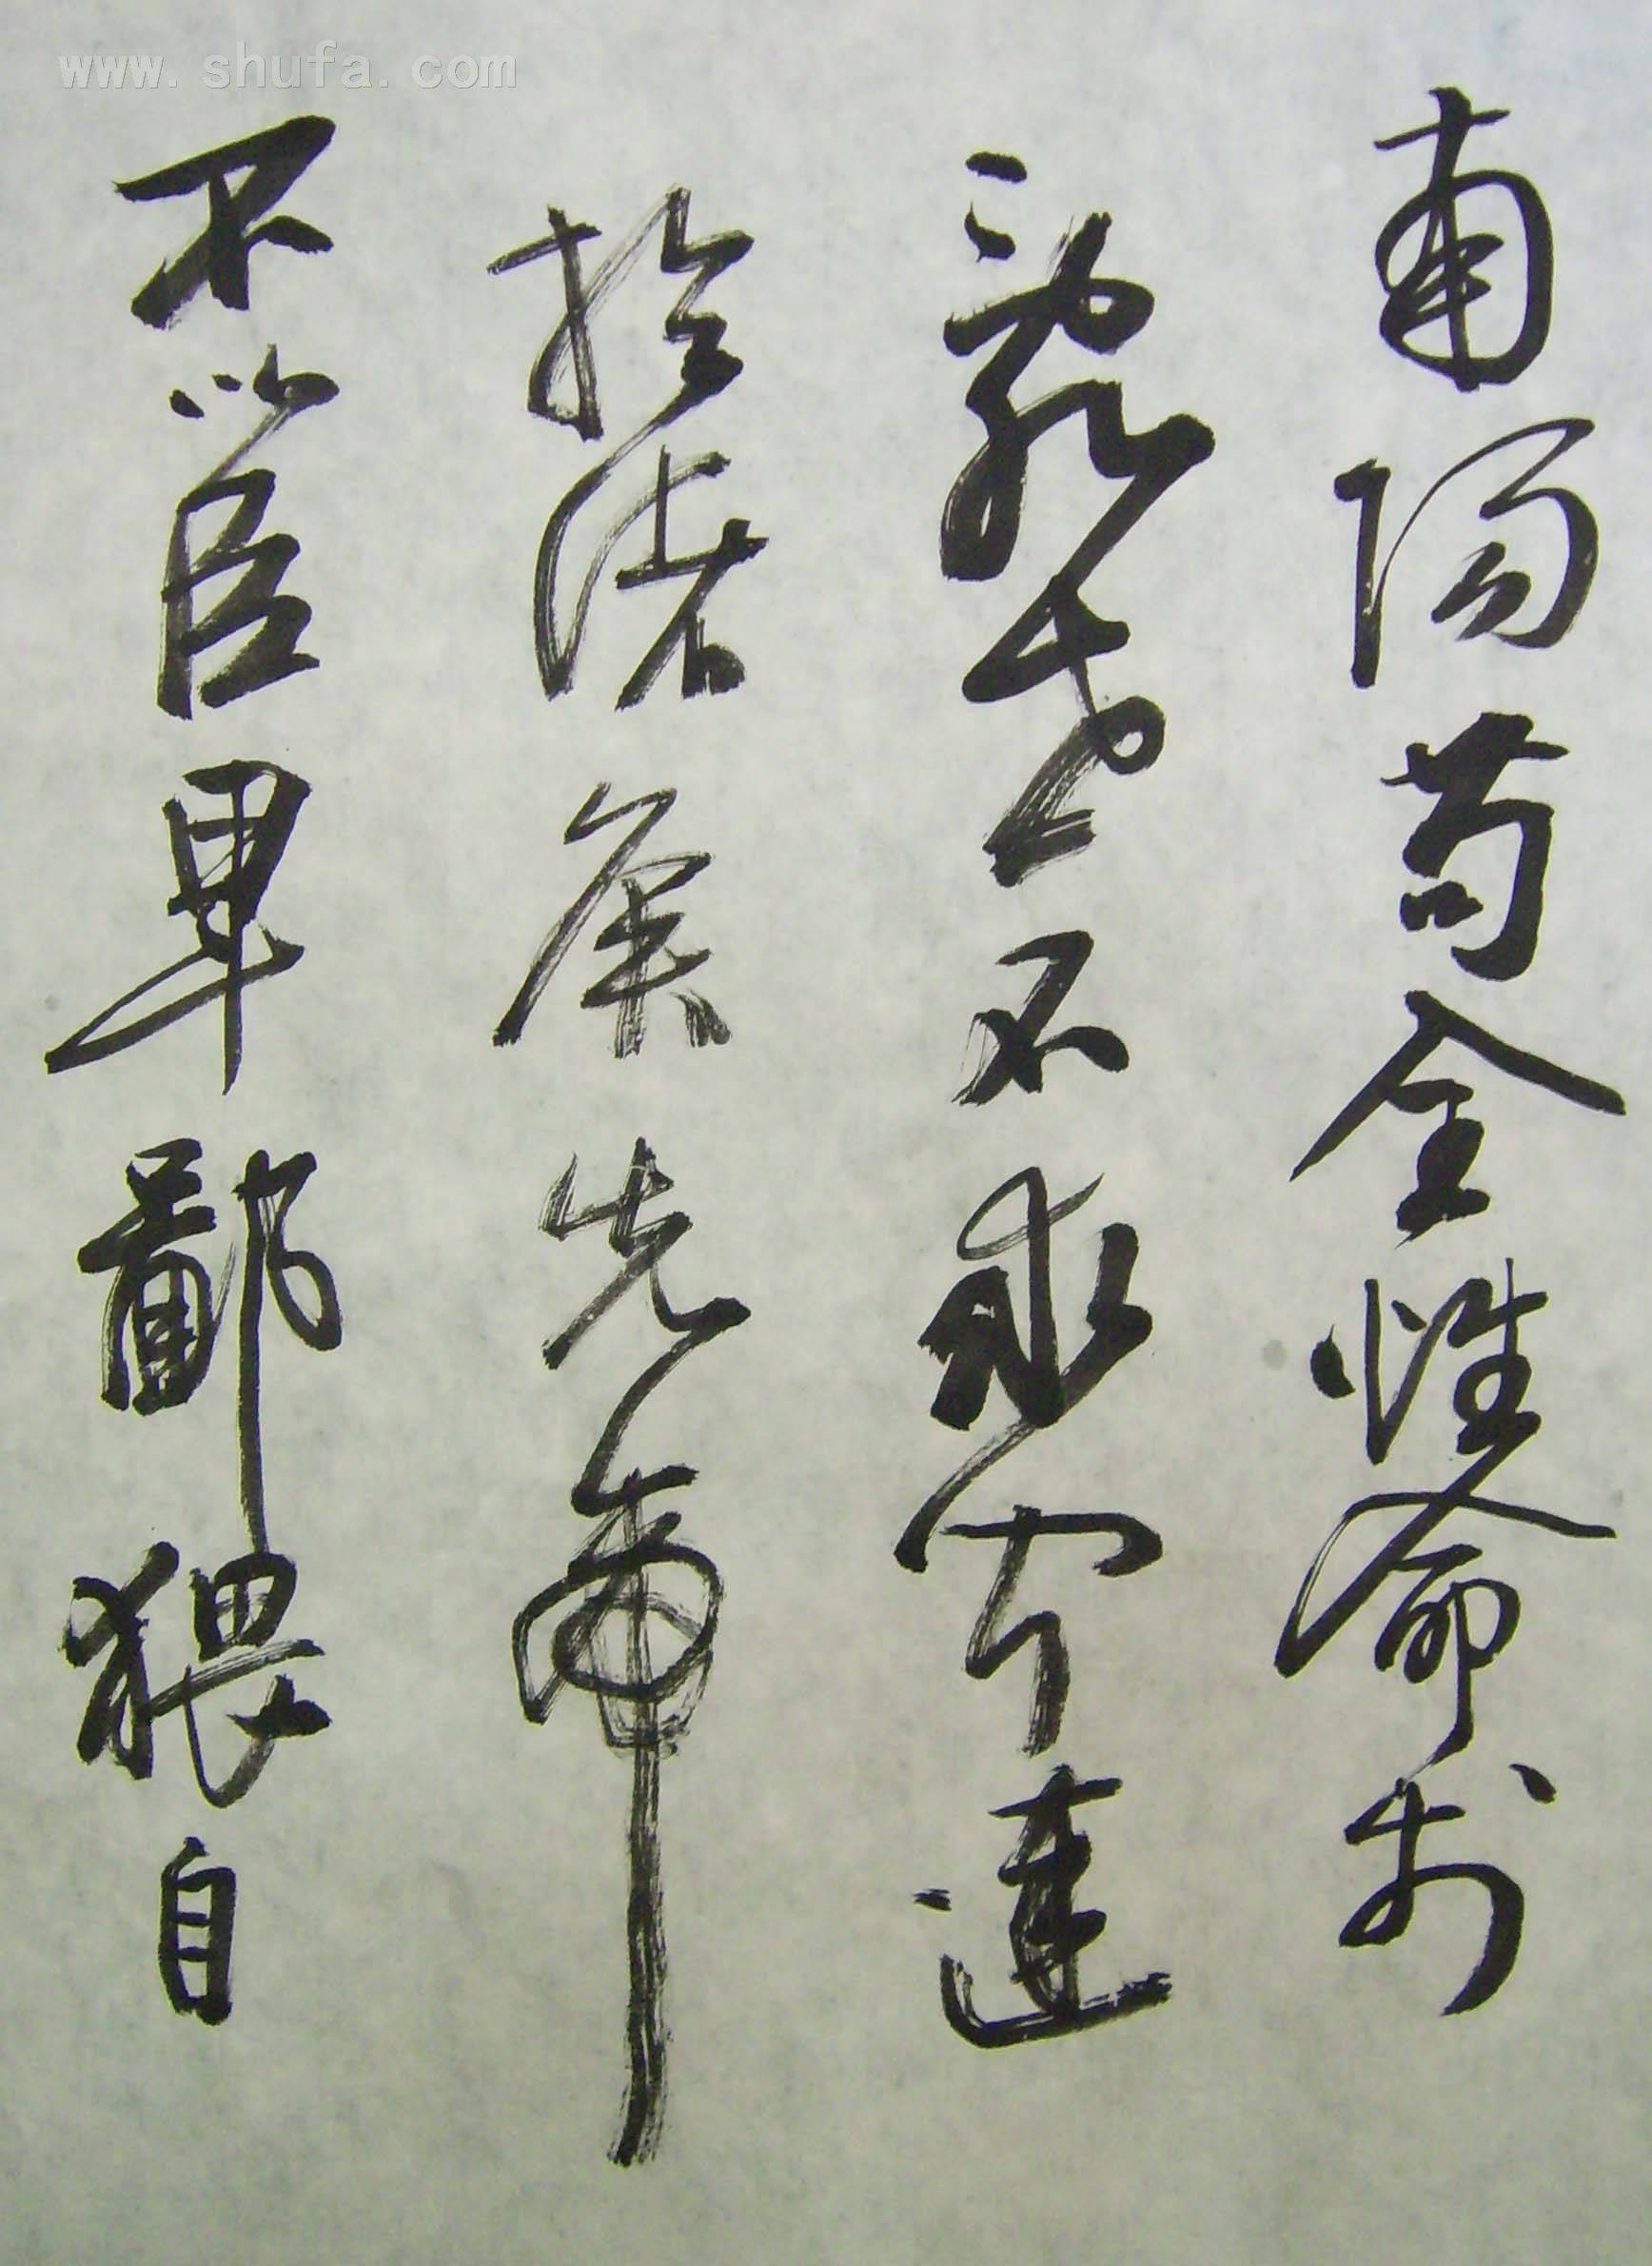 南陽苟全性命於
亂世不求聞達
於諸侯先帝
不以臣卑鄙猥自
www.shufa.com